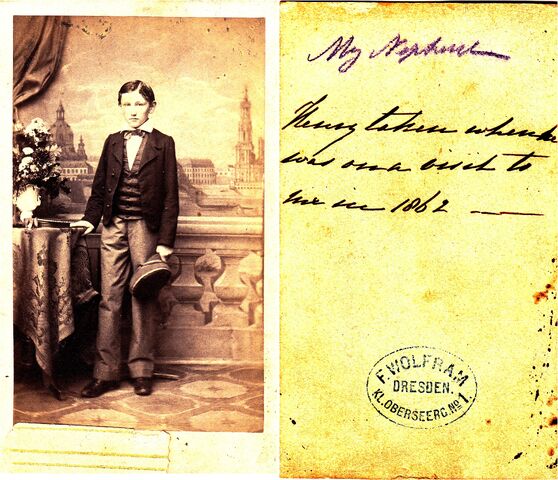 My Nephew
Henry taken when he
was on a visit to
me in 1862
F. WOLFRAM
DRESDEN.
KL. OBERSEERG. No 1.